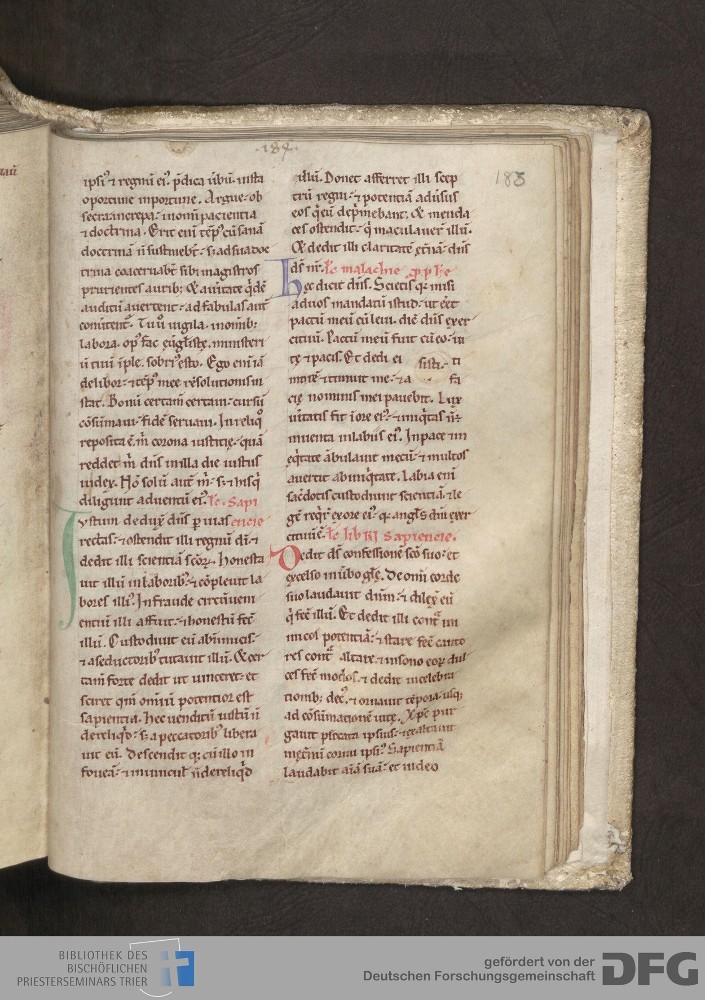 ·184·
183
ipsi⁹ ⁊ regnũ ei⁹. p̃dica ũbũ. insta
oportune inportune. Argue. ob
secra. increpa. in omni pacientia
⁊ doctrina. Erit enĩ tẽp⁹ cũ sanã
doctrinã ñ sustinebt̃. s; ad sua de
trina coaceruabt̃ sibi magistros
prurientes aurib;. & aũitate q̃dẽ
auditũ auertent. ad fabulas aut̃
conũtent᷑. Tu ũ uigila. in omib;
labora. op⁹ fac eũgl̃istẹ. ministeri
ũ tuũ ĩple. sobri⁹ esto. Ego enĩ iã
delibor. ⁊ tẽp⁹ meẹ resolutionis in
stat. Bonũ certam̃ certaui. cursũ
cõsummaui. fidẽ seruaui. In reliq̊
reposita ẽ m̃ corona iusticiẹ. quã
reddet m̃ dñs in illa die iustus
iudex. Ñ solũ aut̃ m̃. s; ⁊ his q̃
diligunt aduentũ ei⁹. lc̃. Sapi
Iustum deduxit dñs p uias encie
rectas. ⁊ ostendit illi regnũ dĩ. ⁊
dedit illi scientiã sc̃oꝝ. Honesta
uit illũ in laborib⁹. ⁊ cõpleuit la
bores illi⁹. In fraude circũueni
entiũ illi affuit. ⁊ honestũ fec̃
illũ. Custodiuit eũ ab inimicis.
⁊ a seductorib⁹ tutauit illũ. & cer
tam̃ forte dedit ut uinceret. et
sciret qm̃ omĩũ potentior est
sapientia. Hec uenditũ iustũ ñ
dereliq̊d. s; a peccatorib⁹ libera
uit eũ. Descendit q; cũ illo in
foueã. ⁊ in uincul̃ ñ dereliq̊d
illũ. Donec afferret illi scep
trũ regni. ⁊ potentiã aduĩsus
eos q̃ eũ dep̃mebant. & menda
ces ostendit. q̃ maculauer̃ illũ.
& dedit illi claritatẽ et̃nã. dñs
ds̃ nr̃. lc̃ malachie p̱ p̱he
Hẹc dicit dñs. Scietis q; misi
ad uos mandatũ istud. ut eẽt
pactũ meũ cũ leui. dic̃ dñs exer
cituũ. Pactũ meũ fuit cũ eo. ui
tẹ ⁊ pacis. Et dedi ei ti
morẽ. ⁊ timuit me. ⁊ a fa
ciẹ nominis mei pauebit. Lex
ũitatis fuit ĩ ore ei⁹. ⁊ iniq̃tas ñ
inuenta in labiis ei⁹. In pace ⁊ in
eq̃tate ãbulauit mecũ. ⁊ multos
auertit ab iniq̃tate. Labia enĩ
sac̃dotis custodiunt scientiã. ⁊ le
gẽ req̃r̃ ex ore ei⁹. q; angl̃s dñi exer
cituũ ẽ. lc̃ libri Sapiencie.
Dedit ds̃ confessionẽ sc̃o suo. et
excelso in ũbo gl̃ẹ. De om̃i corde
suo laudauit dnm̃. ⁊ dilex̃ eũ
q̃ fec̃ illũ. Et dedit illi cont̃ in
imicos potentiã. ⁊ stare fec̃ canto
res cont̃ altare. ⁊ in sono eoꝝ dul
ces fec̃ modos. ⁊ dedit in celebra
tionib; dec⁹. ⁊ ornauit tẽpora. usq;
ad cõsũmationẽ uitẹ. Xp̃c pur
gauit pcc̃ata ipsius. ⁊ exaltauit
in et̃nũ cornu ipsi⁹. Sapientiã
laudabit aĩa sua. et in deo
BIBLIOTHEK DES
BISCHÖFLICHEN
PRIESTERSEMINARS TRIER
gefördert von der
Deutschen Forschungsgemeinschaft
DFG